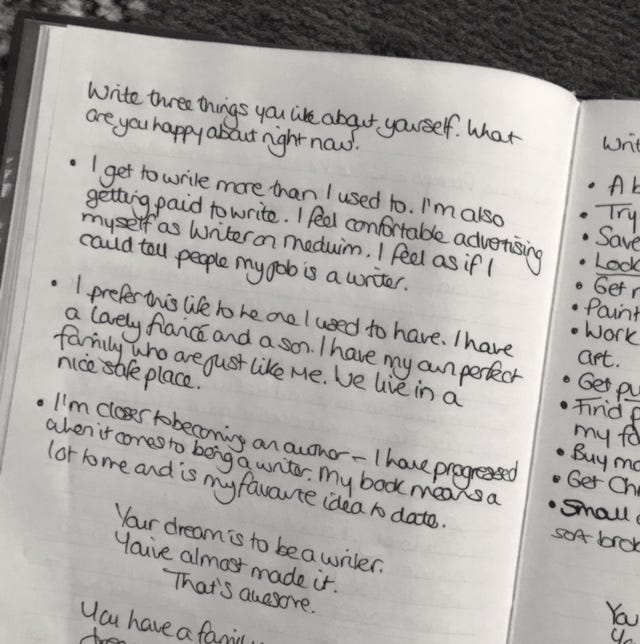 Write three things you like about yourself. What
are you happy about right now?
• I get to write more than I used to. I'm also
getting paid to write. I feel confortable advertising
myself as writer on meduim. I feel as if I
could tell people my job is a writer.
• I prefer this life to he one I used to have. I have
a lovely fiancé and a son. I have my own perfect
family who are just like Me. We live in a
nice safe place.
• I'm closer to becoming an author – I have progressed
when it comes to being a writer. My book means a
lot to me and is my favourite idea to date.
Your dream is to be a writer.
You've almost made it.
That's awesome.
You have a family
Writ
• A b
• Try
• Save
• Look
• Get r
• Paint
• Work
art.
• Get pu
• Find p
my fa
• Buy mo
• Get Ch
• Small
sort brok
You